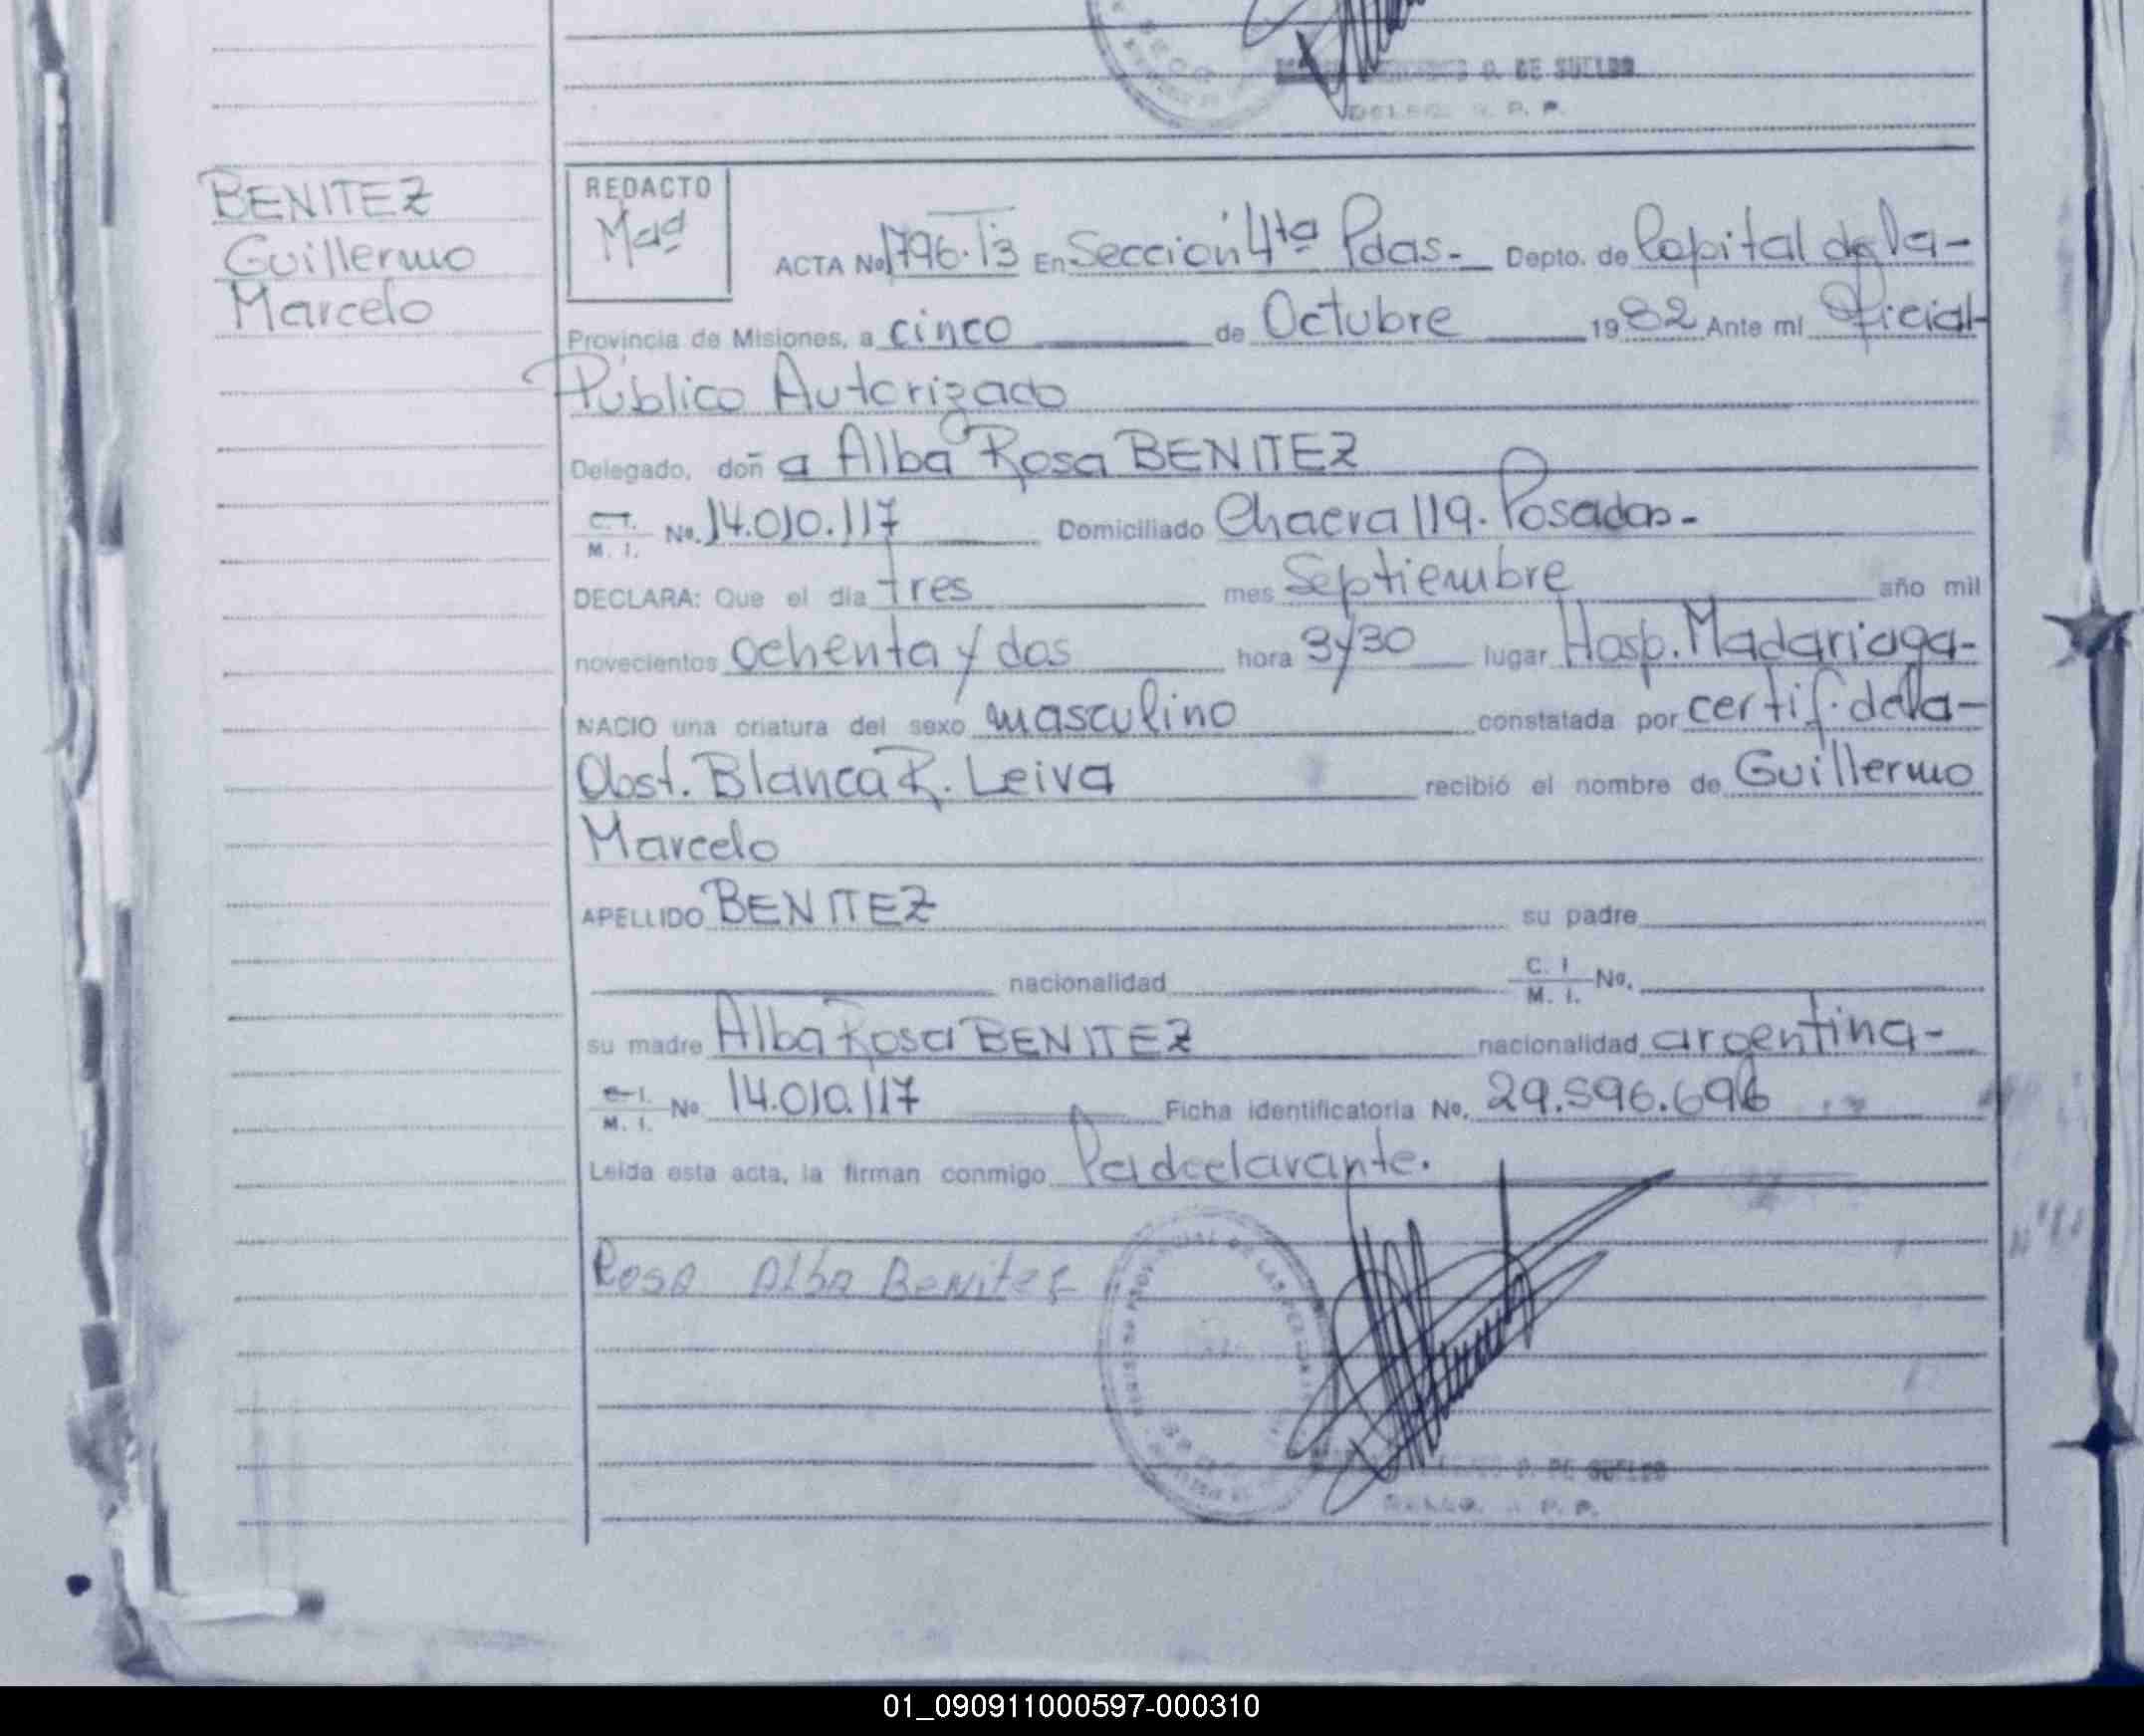 P. DE SUELDO
R. P. P.
BENITEZ
Guillermo
Marcelo
REDACTO
ACTA No 1796. T3 En Sección 4ta Pdas.- Depto. de Capital de la-
Provincia de Misiones, a cinco de Octubre 1982 Ante mí Oficial-
Público Autorizado
Delegado, doña Alba Rosa BENITEZ
C. I. M. I. No. 14.010.117 Domiciliado Chacra 119. Posadas-
DECLARA: Que el día tres mes Septiembre año mil
novecientos ochenta y dos hora 3y30 lugar Hosp. Madariaga-
NACIO una criatura del sexo masculino constatada por certif. de la-
Obst. Blanca R. Leiva recibió el nombre de Guillermo
Marcelo
APELLIDO BENITEZ su padre
nacionalidad C. I. M. I. No.
su madre Alba Rosa BENITEZ nacionalidad argentina-
C. I. M. I. No 14.010.117 Ficha identificatoria No. 29.596.696
Leída esta acta, la firman conmigo la declarante.
Rosa Alba Benitez
P. DE SUELDO
P. P.
01_090911000597-000310